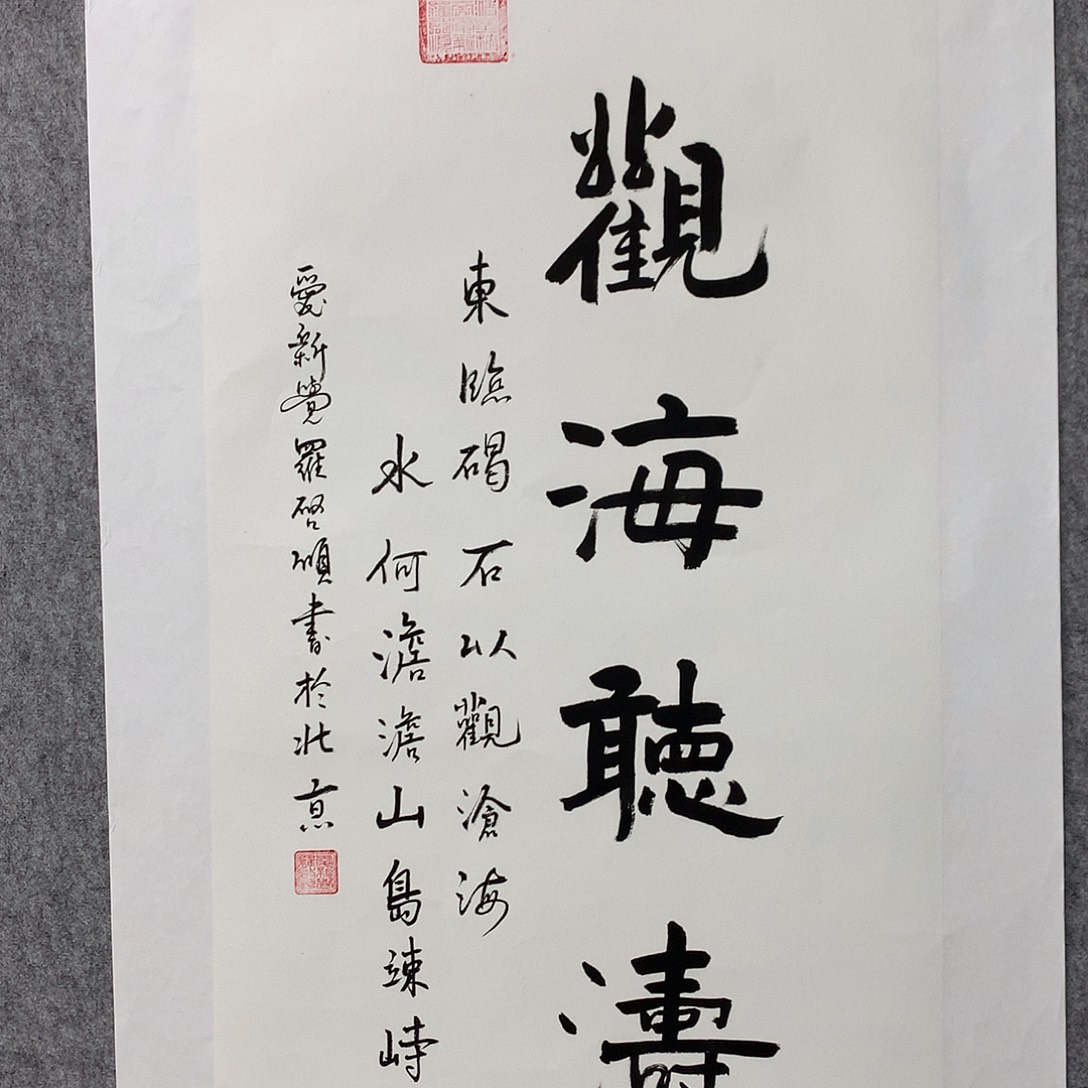 觀海聽濤
東臨碣石以觀滄海
水何澹澹山島竦峙
愛新覺羅啓碩書於北京